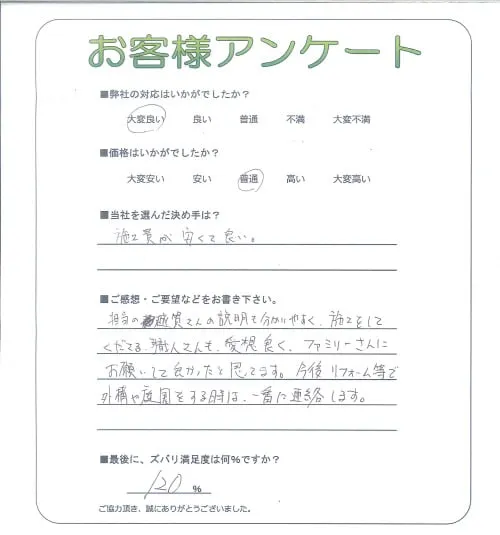 お客様アンケート
■弊社の対応はいかがでしたか？
大変良い 良い 普通 不満 大変不満
■価格はいかがでしたか？
大変安い 安い 普通 高い 大変高い
■当社を選んだ決め手は？
施工費が安くて良い。
■ご感想・ご要望などをお書き下さい。
担当の さんの説明も分かりやすく、施工をして
くださる職人さんも、愛想良く、ファミリーさんに
お願いして良かったと思ってます。今後リフォーム等で
外構や庭園をする時は、一番に連絡します。
■最後に、ズバリ満足度は何％ですか？
120 %
ご協力頂き、誠にありがとうございました。